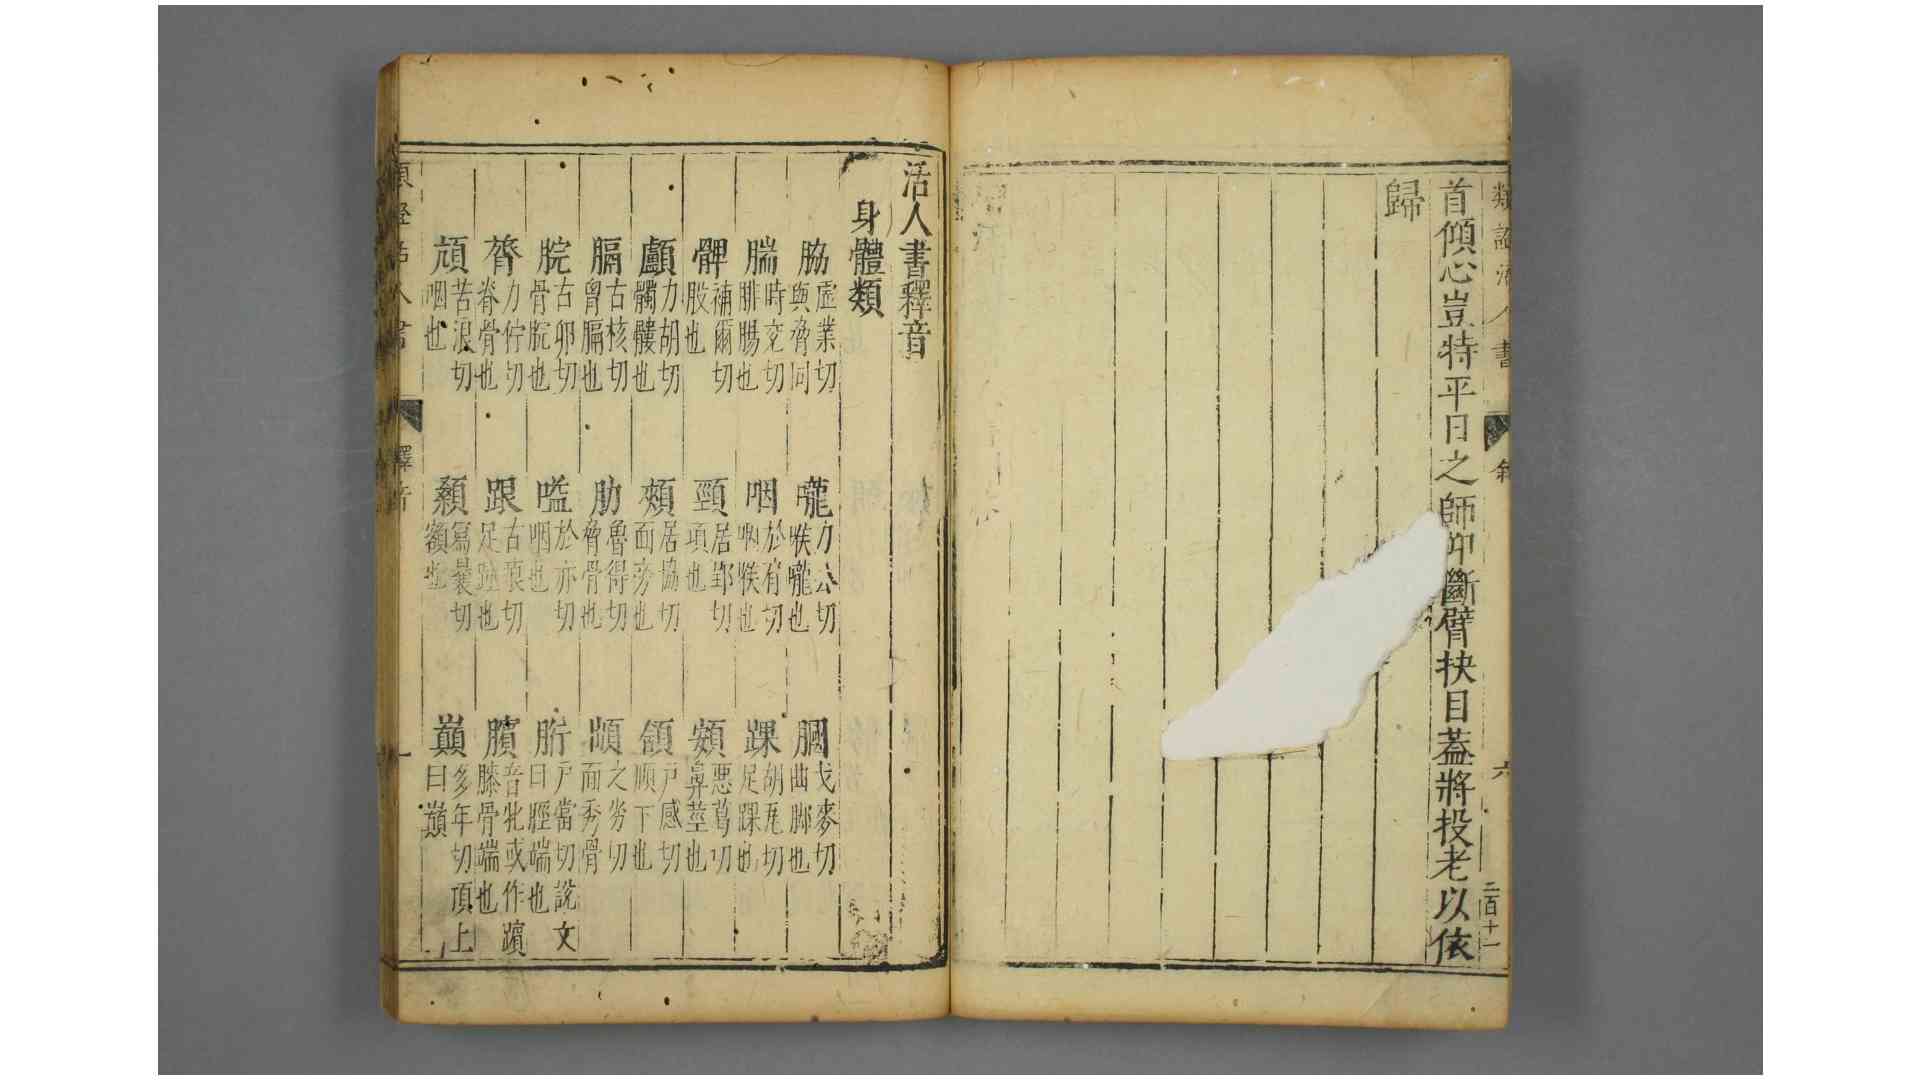 類證活人書 敘 六 二百十一
首傾心豈特平日之師卯斷臂抉目蓋將投老以依
歸
活人書釋音
身體類
脇虛業切與脅同 嚨力公切喉嚨也 膕戈麥切曲脚也
腨時兖切腓腸也 咽於肩切咽喉也 踝胡瓦切足踝也
髀補爾切股也 頸居郢切項也 頞惡葛切鼻莖也
顱力胡切髑髏也 頰居協切面旁也 頷戸感切頤下也
膈古核切胷膈也 肋魯得切脅骨也 䪼之劣切面秀骨
脘古卵切骨脘也 嗌於亦切咽也 胻戸當切說文曰脛端也
膂力佇切脊骨也 跟古痕切足踵也 臏音牝或作髕膝骨端也
頏苦浪切咽也 顙寫曩切額也 巔多年切頂上曰巔
釋音 一